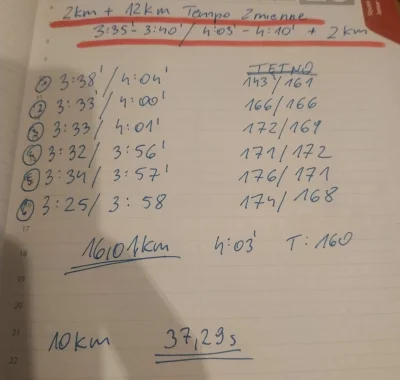 2km + 12km Tempo Zmienne
3:35' - 3:40' / 4:05' - 4:10' + 2km
TĘTNO
1 3:38' / 4:04' 143'/161
2 3:33' / 4:00' 166/166
3 3:33 / 4:01' 172/169
4 3:32 / 3:56' 171/172
5 3:34 / 3:57' 176/171
6 3:25 / 3:58 174/168
17
16,01km 4:03' T: 160
18
10km 37,29s
21
22